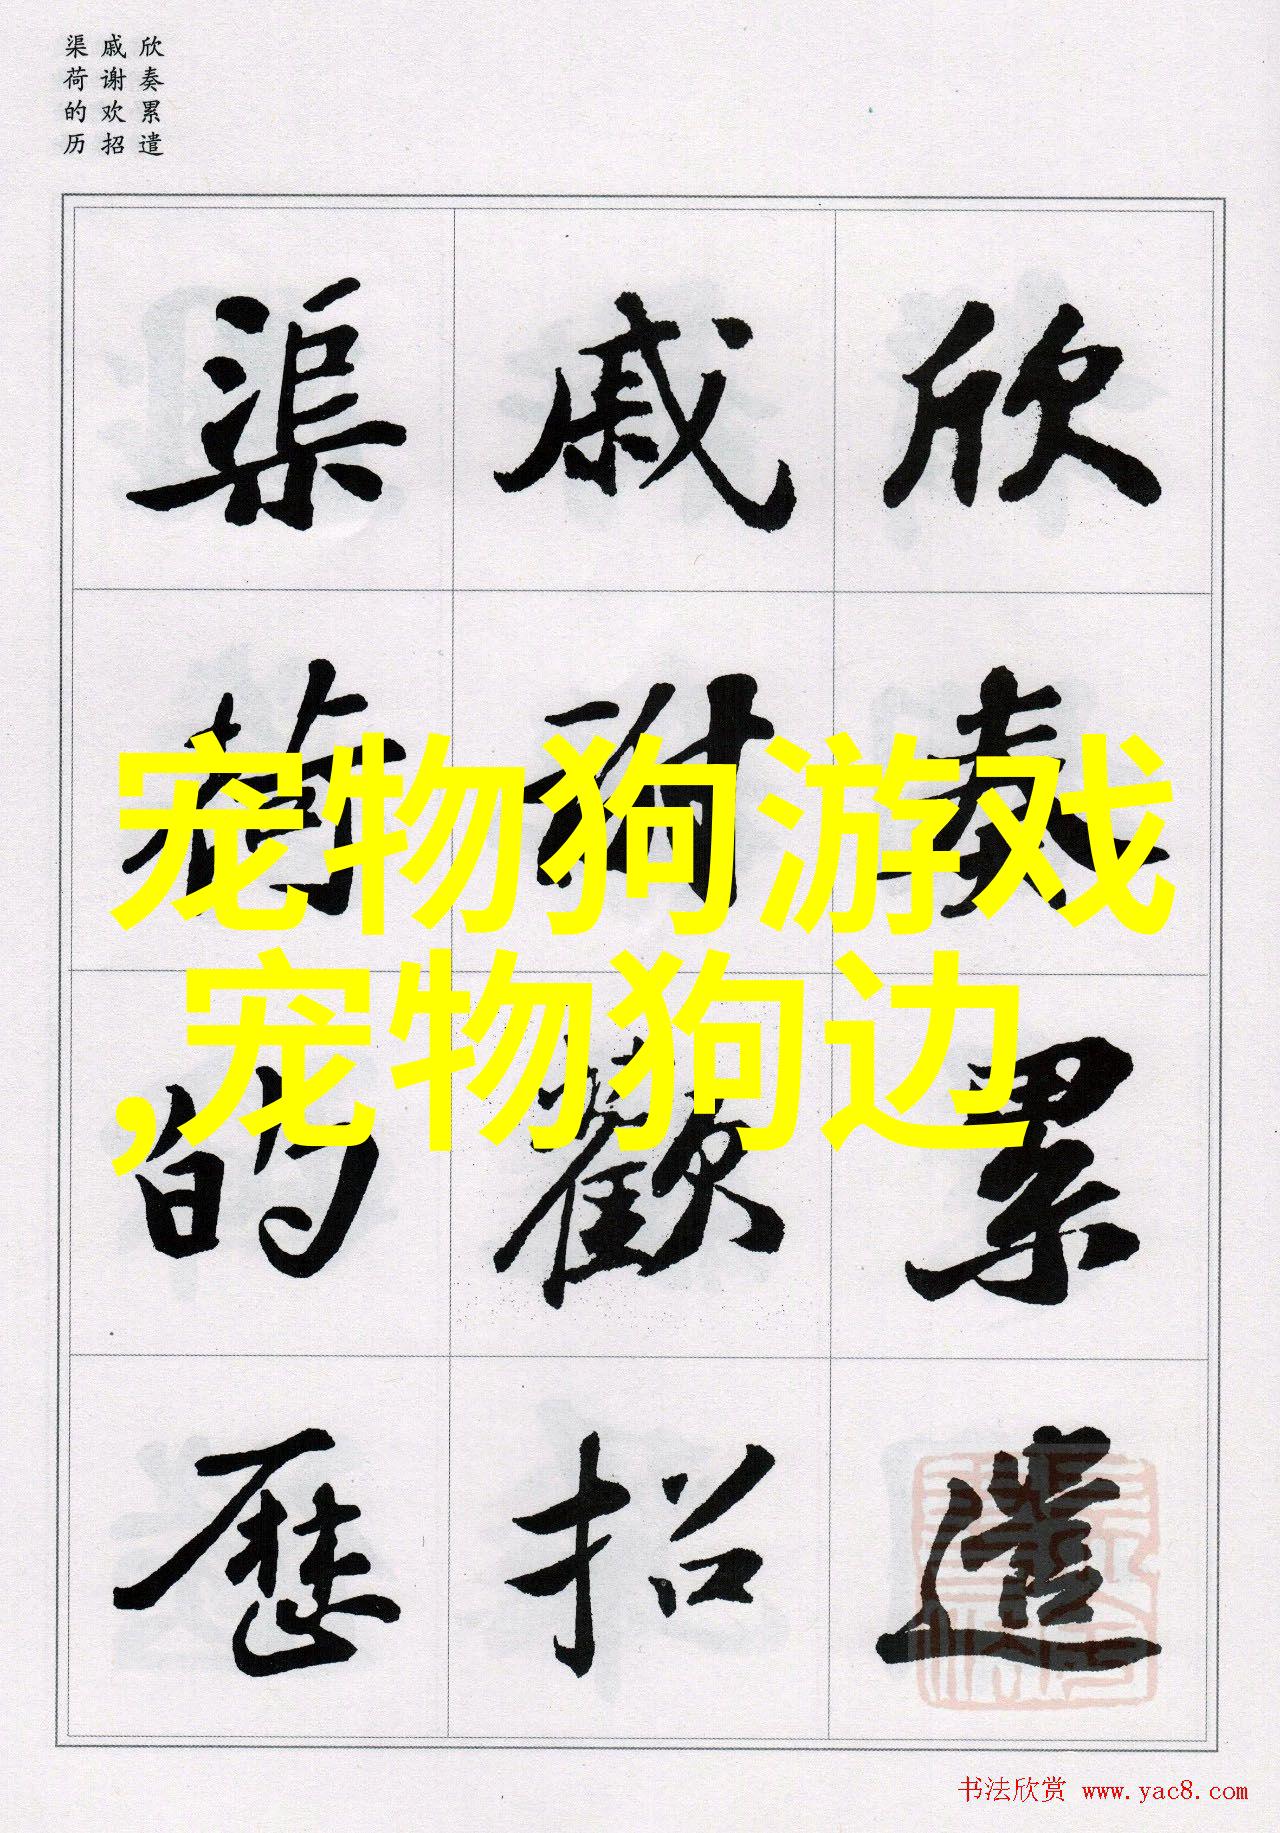 欣奏累遣
戚谢欢招
渠荷的历
欣奏累遣
戚謝歡招
渠荷的歷
宠物狗游戏
,宠物狗边
书法欣赏 www.yac8.com